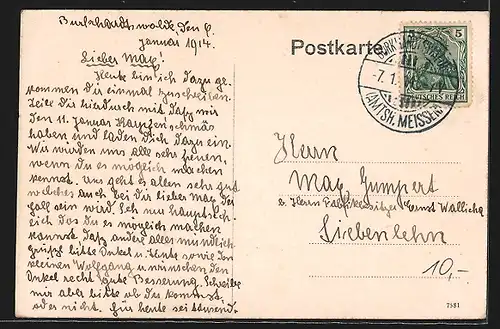 Burkhardtswalde, den 6.
Januar 1914.
Lieber Max!
Heute bin ich dazu ge-
kommen dir einmal zuschreiben.
Teile dir hierdurch mit daß wir
den 11. Januar Karpfenschmaus
haben und laden dich dazu ein.
Wir würden uns alle sehr freuen,
wenn du es möglich machen
kannst. Uns geht es allen sehr gut
welches auch bei dir lieber Max der
Fall sein wird. Ich nur hauptsäch-
lich das du es möglich machen
kannst daß andere alles mündlich
grüße bitte Onkel u. Heute sowie den
kleinen Wolfgang u. wünschen den
Onkel recht gute Besserung. Schreibe
mir aber bitte ob du kommst,
oder nicht. für heute sei tausend-
Postkarte
5
DEUTSCHES REICH
-7.1.
(AMTSH. MEISSEN)
Herrn
Max Gumpert
b. Herrn Ernst Wallicha
Siebenlehn
10,-
7581